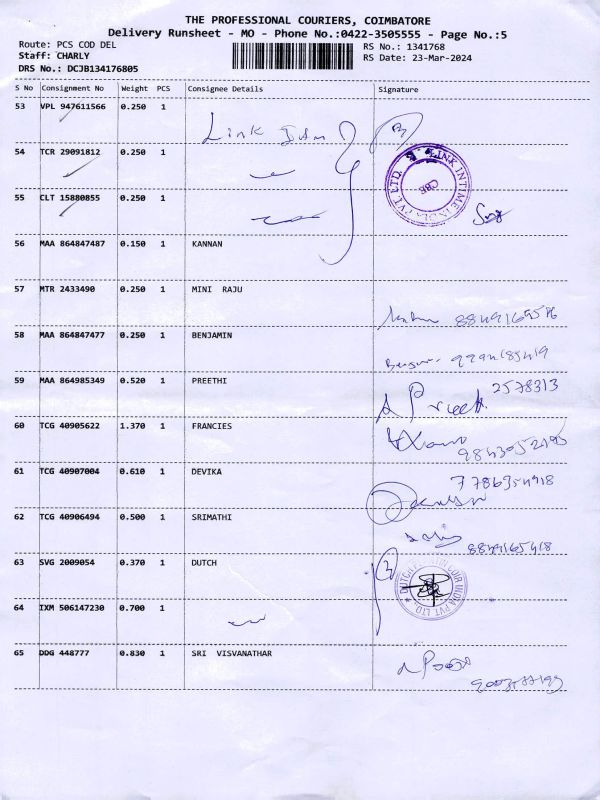 THE PROFESSIONAL COURIERS, COIMBATORE
Delivery Runsheet - MO - Phone No.:0422-3505555 - Page No.:5
Route: PCS COD DEL
RS No.: 1341768
Staff: CHARLY
RS Date: 23-Mar-2024
DRS No.: DCJB134176805
S No Consignment No Weight PCS Consignee Details Signature
53 VPL 947611566 0.250 1
Link
54 TCR 29091812 0.250 1
LINK INTIME INDIA PVT LTD. CBE
55 CLT 15880855 0.250 1
56 MAA 864847487 0.150 1 KANNAN
57 MTR 2433490 0.250 1 MINI RAJU
58 MAA 864847477 0.250 1 BENJAMIN
59 MAA 864985349 0.520 1 PREETHI 2578313
60 TCG 40905622 1.370 1 FRANCIES
61 TCG 40907004 0.610 1 DEVIKA
62 TCG 40906494 0.500 1 SRIMATHI
63 SVG 2009054 0.370 1 DUTCH
64 IXM 506147230 0.700 1
65 DDG 448777 0.830 1 SRI VISVANATHAR